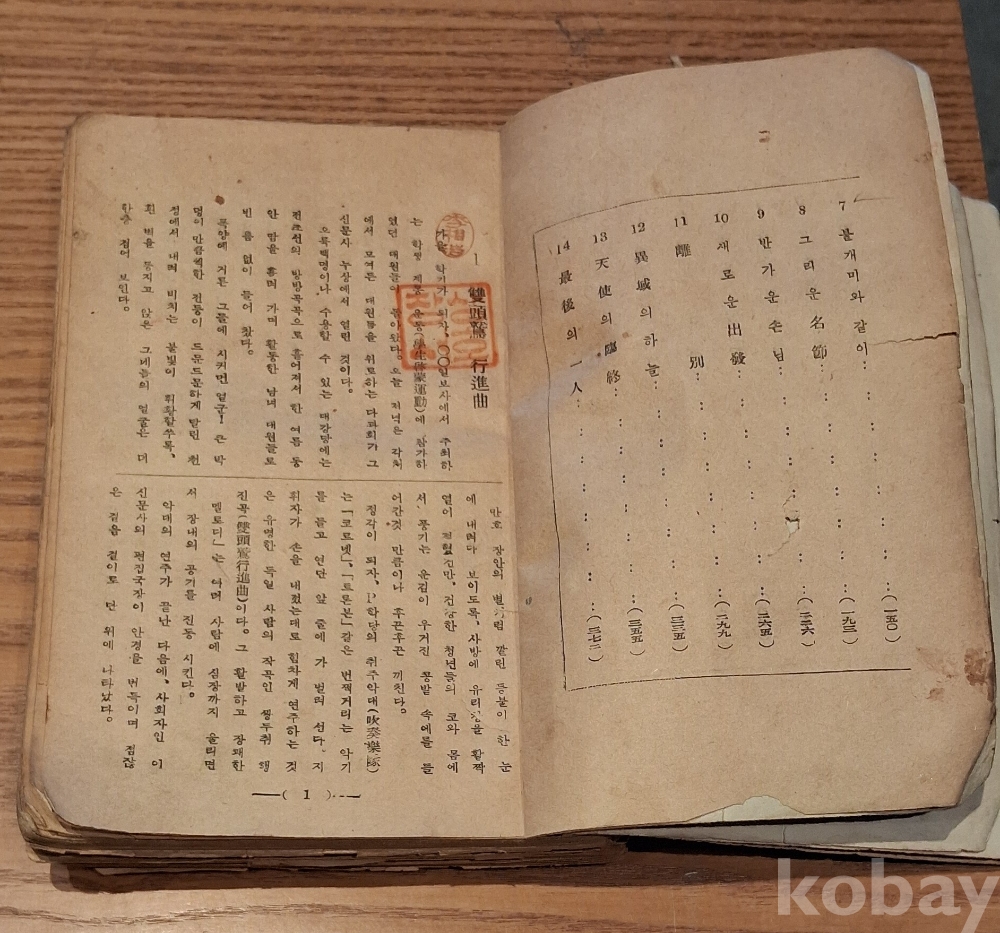 7 불개미와 같이……(一五〇)
8 그리운 名節……(一九三)
9 반가운 손님……(二二六)
10 새로운 出發……(二六五)
11 離別……(二九九)
12 異域의 하늘……(三三五)
13 天使의 臨終……(三五五)
14 最後의 一人……(三七三)
1 雙頭鷲 行進曲
가을 학기가 되자, 〇〇일보사에서 주최하
는 학생 계몽 운동(學生啓蒙運動)에 참가하
였던 대원들이 돌아왔다. 오늘 저녁은 각처
에서 모여든 대원들을 위로하는 다과회가 그
신문사 누상에서 열린 것이다.
오륙백명이나 수용할 수 있는 대강당에는
전조선의 방방곡곡으로 흩어져서 한 여름 동
안 땀을 흘려 가며 활동한 남녀 대원들로
빈틈 없이 들어 찼다.
폭양에 거른 그들에 시커먼 얼굴! 큰 박
덩이 만큼씩한 전등이 드문드문하게 달린 천
정에서 내려 비치는 불빛이 휘황할쑤록,
흰 벽을 등지고 앉은 그네들의 얼굴은 더
한층 검어 보인다.
만호 장안의 별처럼 깔린 등불이 한 눈
에 내려다 보이도록, 사방에 유리창을 활짝
열어 젖혔건만, 건강한 청년들의 코와 몸에
서 풍기는 운김이 우거진 콩밭 속에를 들
어간것 만큼이나 후끈후끈 끼친다.
정각이 되자, P학당의 취주악대(吹奏樂隊)
는「코르넷」,「트론본」같은 번쩍거리는 악기
를 들고 연단 앞 줄에 가 벌려 선다. 지
휘자가 손을 내젓는대로 힘차게 연주하는 것
은 유명한 독일 사람의 작곡인 쌍두취 행
진곡(雙頭鷲行進曲)이다. 그 활발하고 장쾌한
「멜로디」는 여러 사람에 심장까지 울리면
서 장내의 공기를 진동 시킨다.
악대의 연주가 끝난 다음에, 사회자인 이
신문사의 편집국장이 안경을 번득이며 점잖
은 걸음 걸이로 단 위에 나타났다.
—( 1 )—
kobay